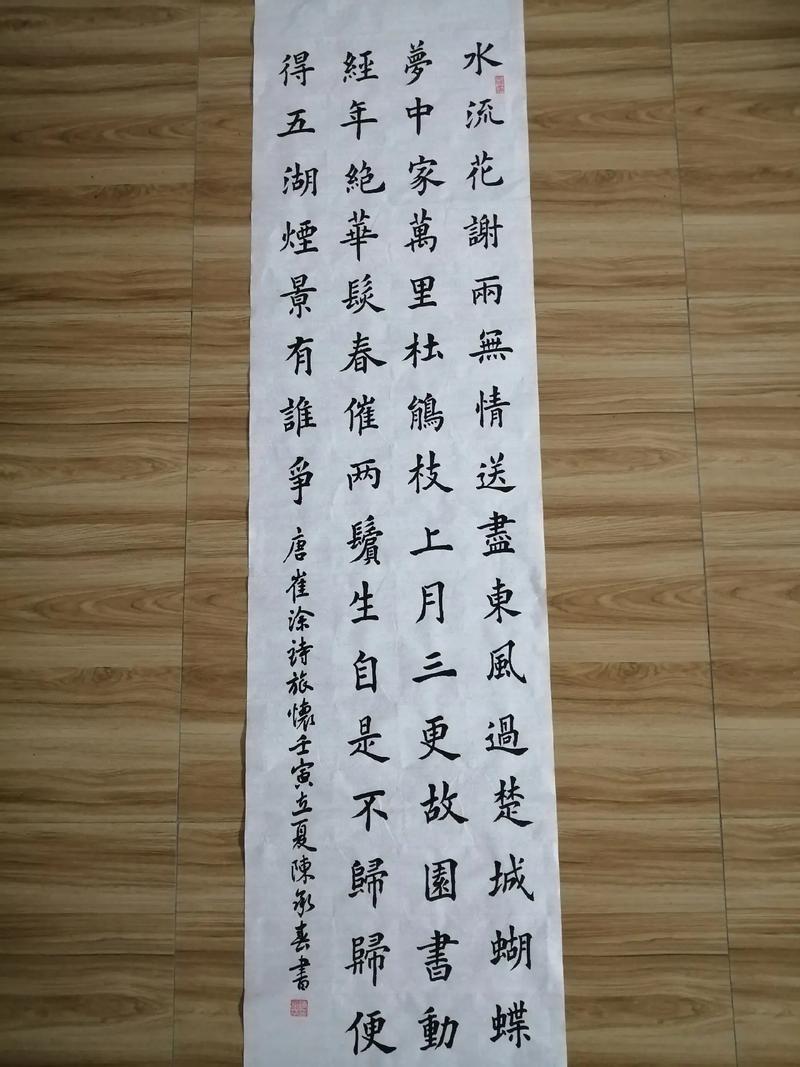 水流花謝兩無情送盡東風過楚城蝴蝶
夢中家萬里杜鵑枝上月三更故園書動
經年絶華髮春催两鬢生自是不歸歸便
得五湖煙景有誰爭
唐崔涂詩旅懷壬寅立夏陳承春書